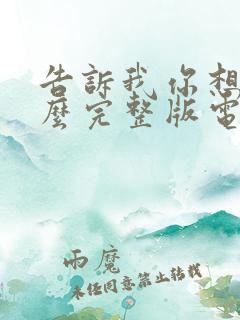 告訴我你想
麼完整版電
雨魔
未经同意禁止转载